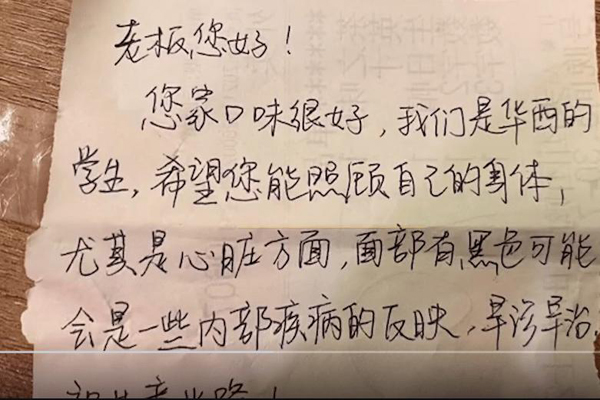 老板您好！
您家口味很好，我们是华西的
学生，希望您能照顾自己的身体，
尤其是心脏方面，面部有黑色可能
会是一些内部疾病的反映，早诊早治，